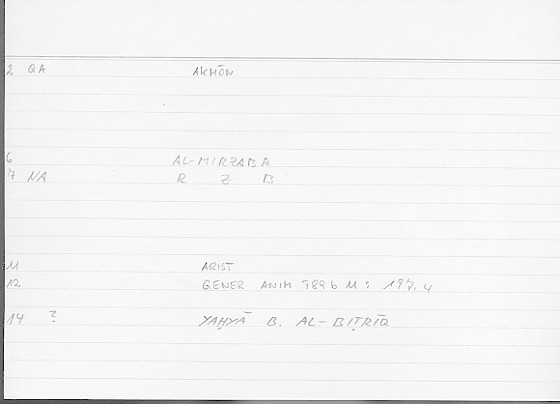 2 QA AKMŌN
6 AL-MIRZABA
7 NA R Z B
11 ARIST
12 GENER ANIM 789b 11: 197,4
14 ? YAḤYĀ B. AL-BIṬRĪQ